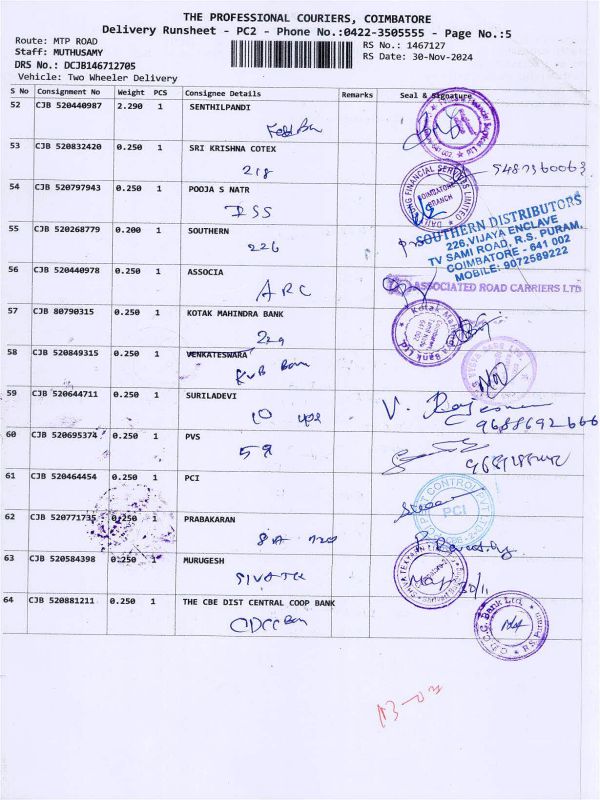 THE PROFESSIONAL COURIERS, COIMBATORE
Delivery Runsheet - PC2 - Phone No.:0422-3505555 - Page No.:5
Route: MTP ROAD
RS No.: 1467127
Staff: MUTHUSAMY
RS Date: 30-Nov-2024
DRS No.: DCJB146712705
Vehicle: Two Wheeler Delivery
S No Consignment No Weight PCS Consignee Details Remarks Seal & Signature
52 CJB 520440987 2.290 1 SENTHILPANDI
53 CJB 520832420 0.250 1 SRI KRISHNA COTEX
218
54 CJB 520797943 0.250 1 POOJA S NATR
DSS
55 CJB 520268779 0.200 1 SOUTHERN
226
SOUTHERN DISTRIBUTORS
226, VIJAYA ENCLAVE
TV SAMI ROAD, R.S. PURAM,
COIMBATORE - 641 002
MOBILE: 9072589222
56 CJB 520440978 0.250 1 ASSOCIA
ARC
ASSOCIATED ROAD CARRIERS LTD
57 CJB 80790315 0.250 1 KOTAK MAHINDRA BANK
229
58 CJB 520849315 0.250 1 VENKATESWARA
KVB Ban
59 CJB 520644711 0.250 1 SURILADEVI
10
9688692666
60 CJB 520695374 0.250 1 PVS
59
61 CJB 520464454 0.250 1 PCI
PCI
62 CJB 520771735 0.250 1 PRABAKARAN
63 CJB 520584398 0.250 1 MURUGESH
30/11
64 CJB 520881211 0.250 1 THE CBE DIST CENTRAL COOP BANK
CDCC Ban